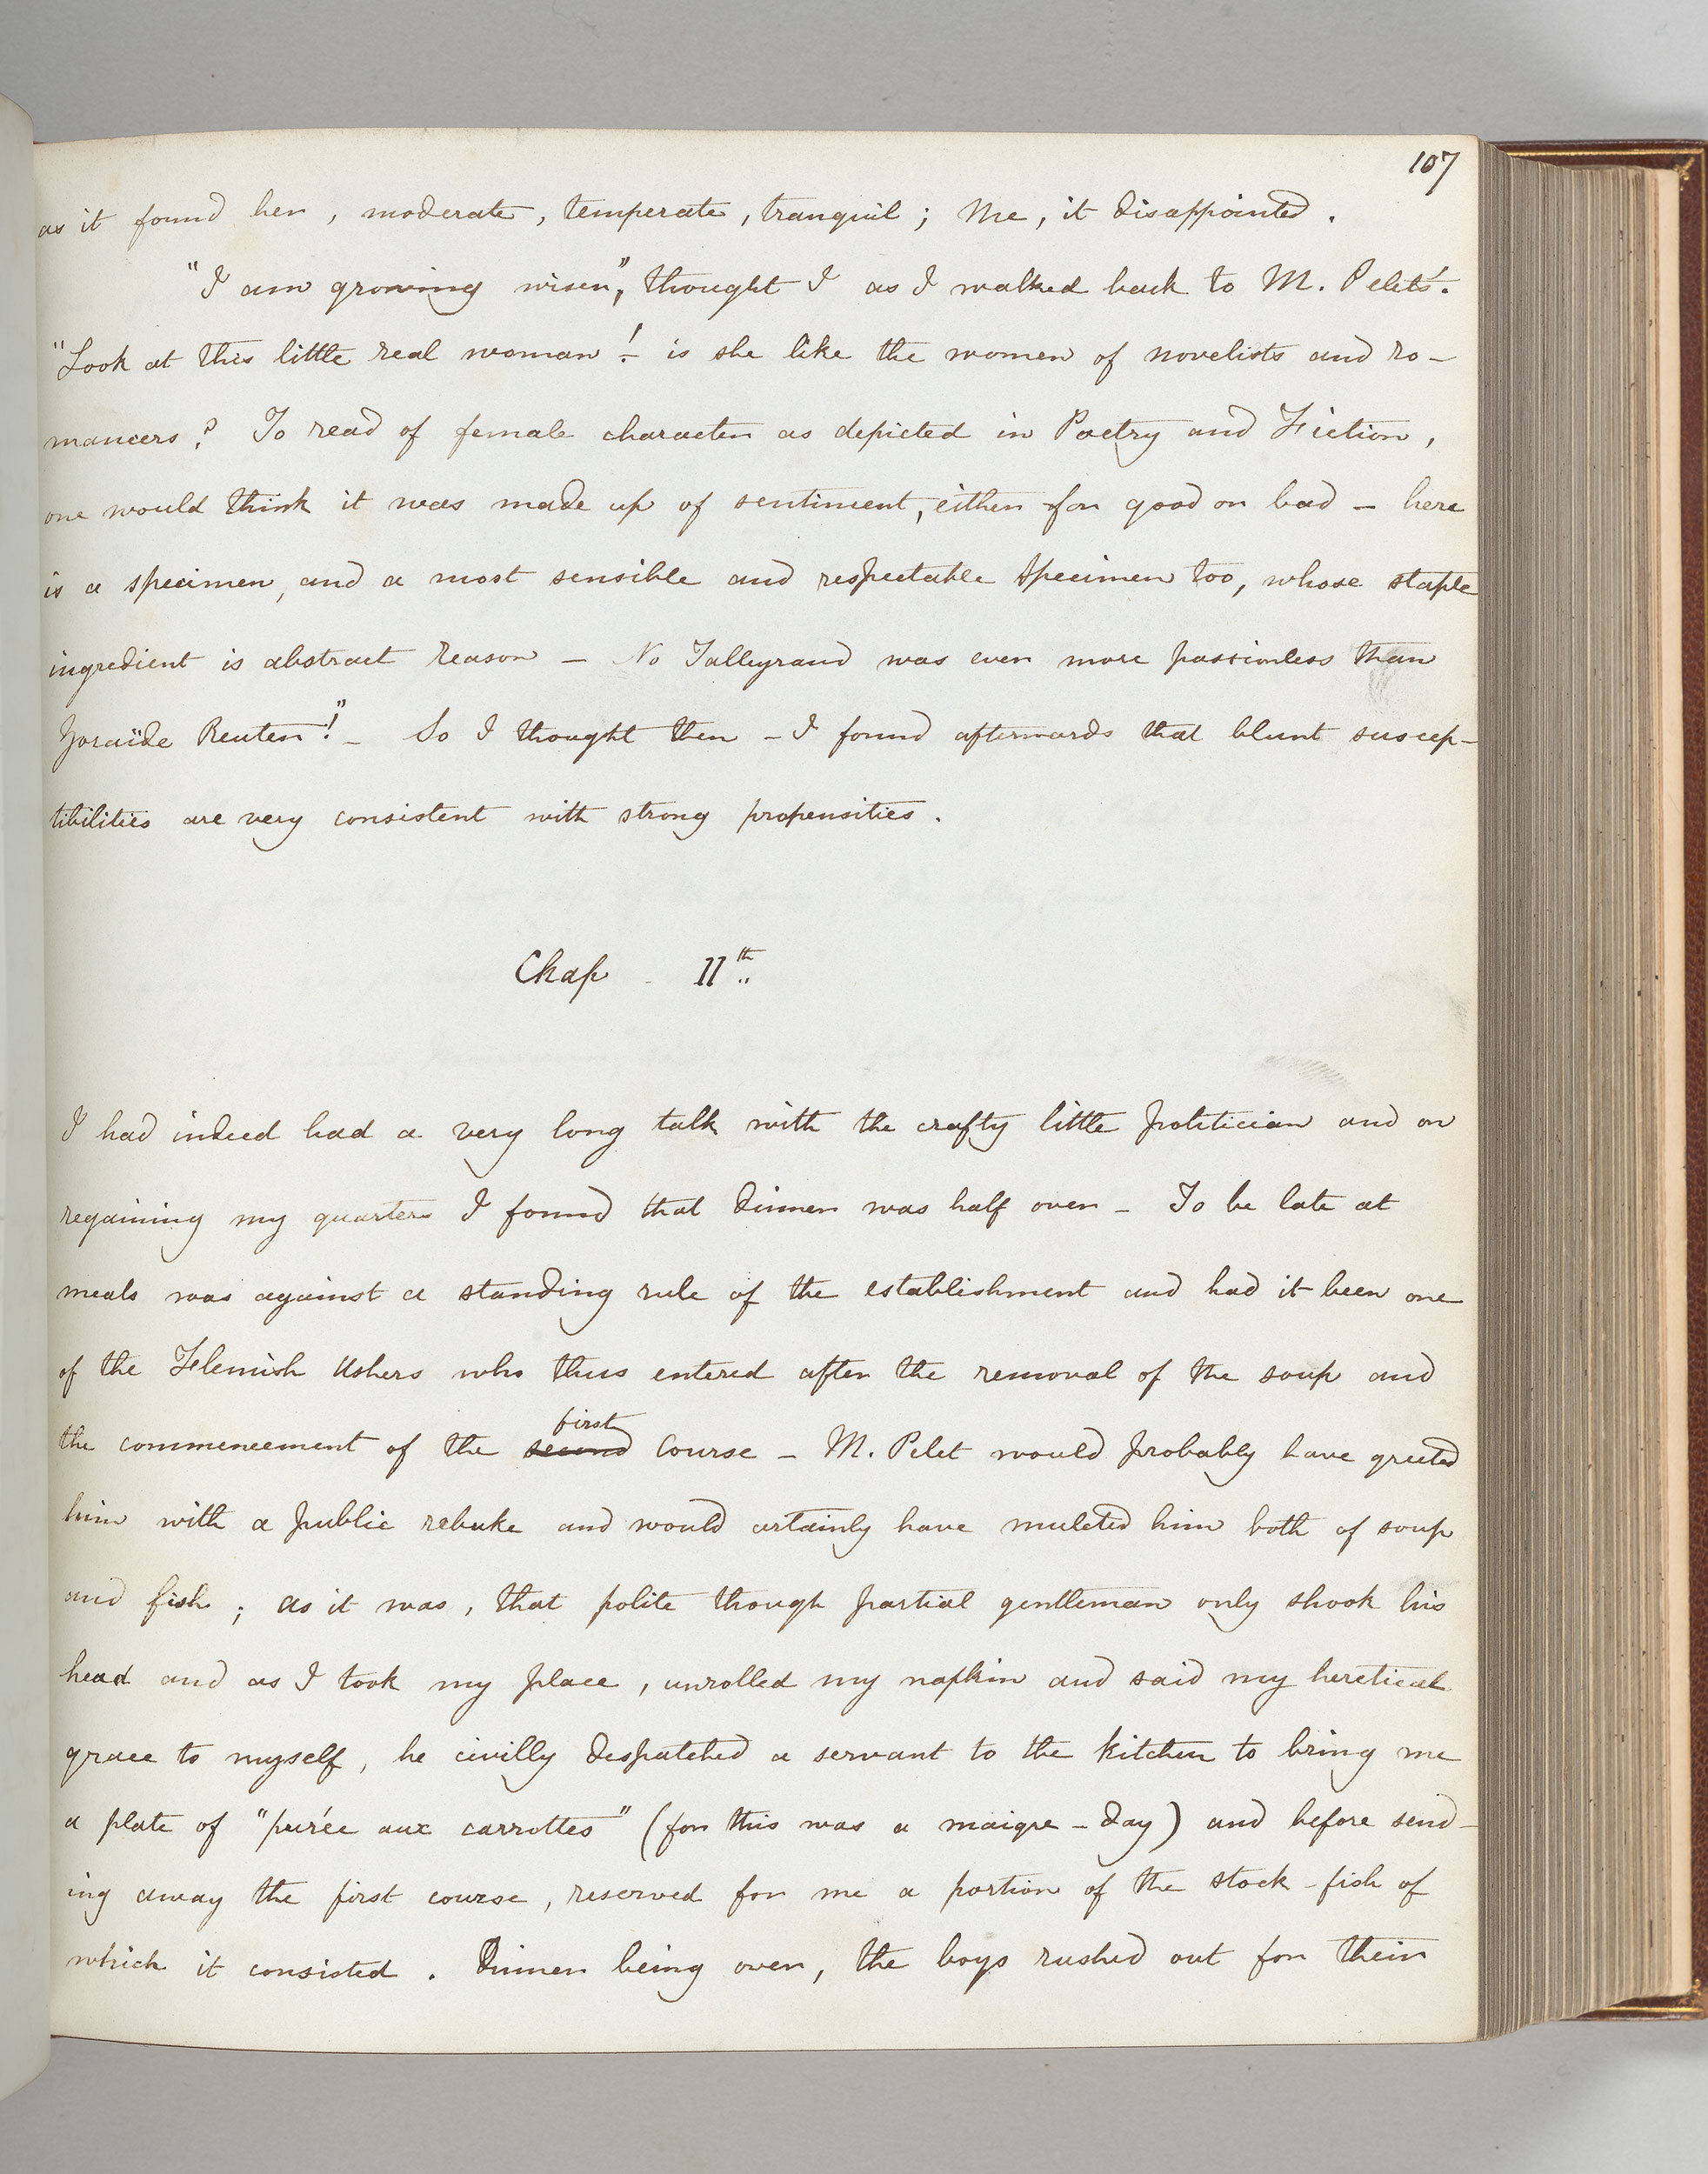 107
as it found her, moderate, temperate, tranquil; me, it disappointed.
"I am growing wiser", thought I as I walked back to M. Pelet's.
"Look at this little real woman! – is she like the women of novelists and ro-
mancers? To read of female character as depicted in Poetry and Fiction,
one would think it was made up of sentiment, either for good or bad – here
is a specimen, and a most sensible and respectable specimen too, whose staple
ingredient is abstract reason – No Talleyrand was ever more passionless than
Zoraïde Reuter!" – So I thought then – I found afterwards that blunt suscep-
tibilities are very consistent with strong propensities.
Chap 11th
I had indeed had a very long talk with the crafty little politician and on
regaining my quarters I found that dinner was half over – To be late at
meals was against a standing rule of the establishment and had it been one
of the Flemish Ushers who thus entered after the removal of the soup and
the commencement of the second first course – M. Pelet would probably have greeted
him with a public rebuke and would certainly have mulcted him both of soup
and fish; as it was, that polite though partial gentleman only shook his
head and as I took my place, unrolled my napkin and said my heretical
grace to myself, he civilly despatched a servant to the kitchen to bring me
a plate of "purée aux carrottes" (for this was a maigre-day) and before send-
ing away the first course, reserved for me a portion of the stock-fish of
which it consisted. Dinner being over, the boys rushed out for their